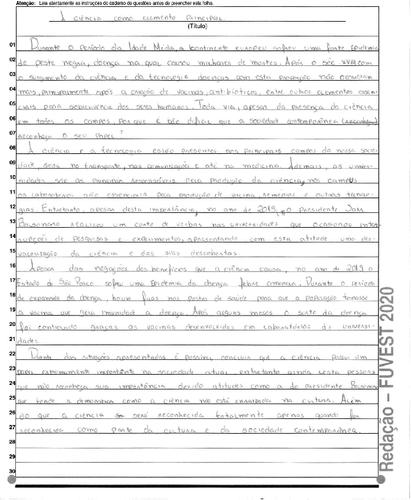 Atenção: Leia atentamente as instruções do caderno de questões antes de preencher esta folha.
A ciência como elemento principal
(Título)
01 Durante o período da Idade Média, o continente europeu sofreu uma forte epidemia
02 de peste negra, doença na qual causou milhares de mortes. Após o séc XVIII com
03 o surgimento da ciência e da tecnologia doenças com esta proporção não ocorreram
04 mais, principalmente após a criação de vacinas, antibióticos, entre outros elementos essen-
05 ciais para sobrevivência dos seres humanos. Toda via, apesar da presença da ciência
06 em todos os campos, Por que é tão difícil que a sociedade contemporânea
07 reconheça o seu Papel?
08 A ciência e a tecnologia estão presentes nos principais campos da nossa socie-
09 dade, seja no transporte, nas comunicações e até na medicina. Ademais, as univer-
10 sidades são as maiores responsáveis pela produção da ciência, nos campos
11 os laboratórios são essenciais para produção de vacina, remédios e outras
12 Entretanto, apesar desta importância, no ano de 2019, o presidente Jair
13 Bolsonaro realizou um corte de verbas nas universidades que ocasionou
14 de pesquisas e experimentos, apresentando com esta atitude uma des-
15 valorização da ciência e das suas descobertas.
16 Apesar das negações dos benefícios que a ciência causa, no ano de 2019 o
17 Estado de São Paulo sofreu uma epidemia da doença febre amarela. Durante o período
18 de expansão da doença, houve filas nos postos de saúde para que a população tomasse
19 a vacina que gera imunidade a doença. Após alguns meses o surto da doença
20 foi controlado graças as vacinas desenvolvidas em laboratórios de universi-
21 dades.
22 Diante das situações apresentadas é possível concluir que a ciência possui um
23 papel extremamente importante na sociedade atual, entretanto ainda existe pessoas
24 que não reconheça sua importância devido atitudes como a do presidente Bolsonaro
25 que tende a demonstrar como a ciência não está enraizada na cultura. Além
26 do que a ciência só será reconhecida totalmente apenas quando for
27 reconhecida como parte da cultura e da sociedade contemporânea.
28
29
30
Redação – FUVEST 2020